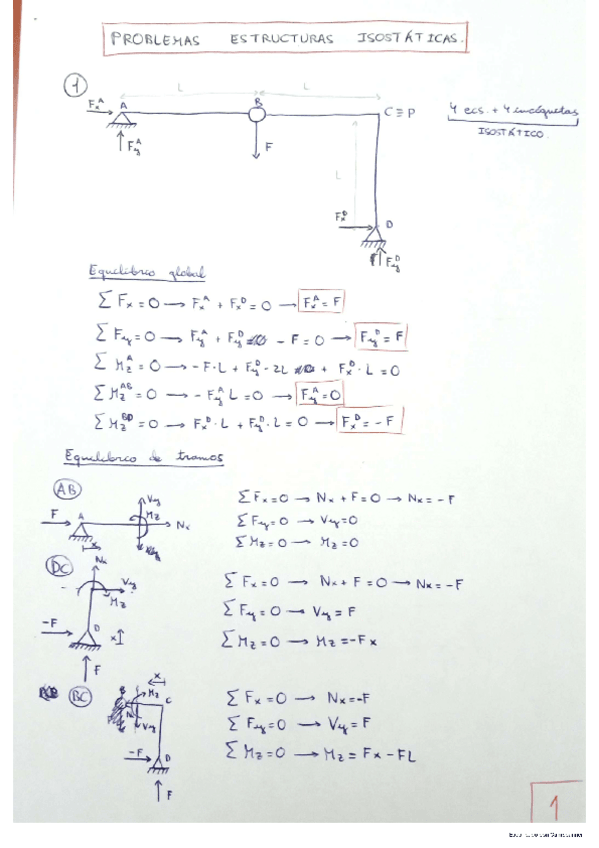 PROBLEMAS ESTRUCTURAS ISOSTÁTICAS.
1
L L
F_x^A A B C≡P
4 ecs. + 4 incógnitas
ISOSTÁTICO.
F_y^A F
L
F_x^D D
F_y^D
Equilibrio global
∑F_x = 0 → F_x^A + F_x^D = 0 → F_x^A = F
∑F_y = 0 → F_y^A + F_y^D - F = 0 → F_y^D = F
∑M_z^A = 0 → -F·L + F_y^D·2L + F_x^D·L = 0
∑M_z^AB = 0 → -F_y^A L = 0 → F_y^A = 0
∑M_z^BD = 0 → F_x^D·L + F_y^D·L = 0 → F_x^D = -F
Equilibrio de tramos
AB
F A V_y M_z N_x x
∑F_x = 0 → N_x + F = 0 → N_x = -F
∑F_y = 0 → V_y = 0
∑M_z = 0 → M_z = 0
DC
N_x V_y M_z -F D x F
∑F_x = 0 → N_x + F = 0 → N_x = -F
∑F_y = 0 → V_y = F
∑M_z = 0 → M_z = -Fx
BC
B x M_z C N V_y -F D F
∑F_x = 0 → N_x = -F
∑F_y = 0 → V_y = F
∑M_z = 0 → M_z = Fx - FL
1